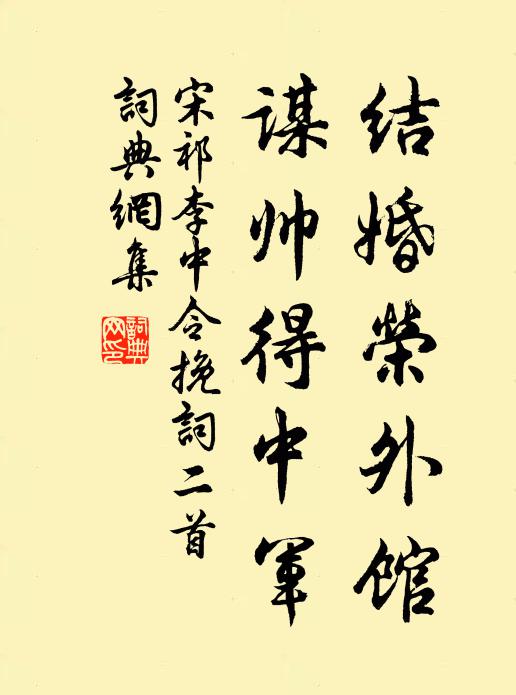 结婚荣外馆
谋帅得中军
宋祁李中令挽詞二首
詞典網集
詞典网印